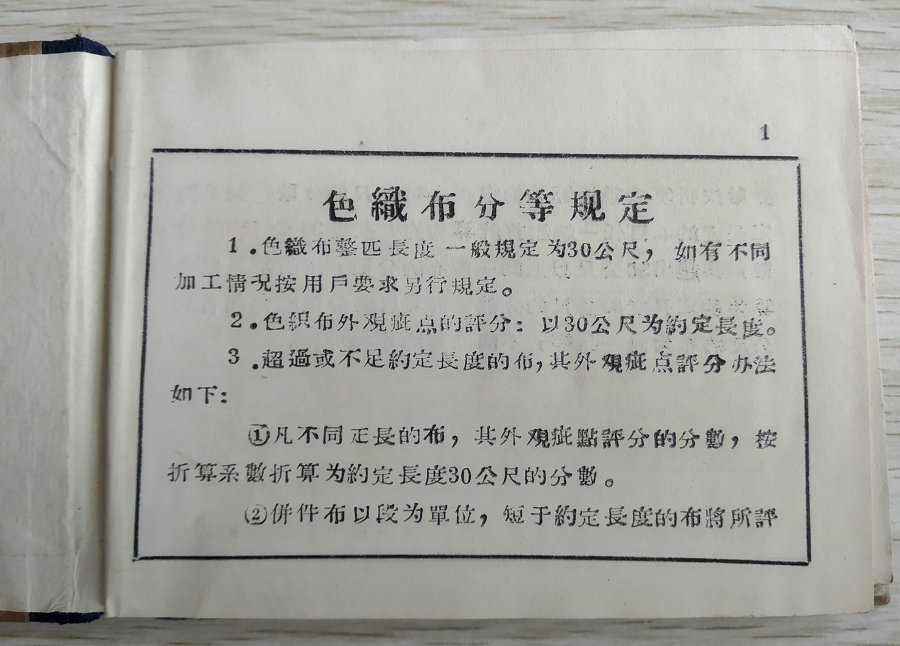 1
色織布分等规定
1.色織布整匹長度一般規定为30公尺，如有不同
加工情况按用戶要求另行規定。
2.色织布外观疵点的評分：以30公尺为約定長度。
3.超過或不足約定長度的布，其外观疵点評分办法
如下：
①凡不同疋長的布，其外观疵點評分的分數，按
折算系數折算为約定長度30公尺的分數。
②併件布以段为單位，短于約定長度的布將所評